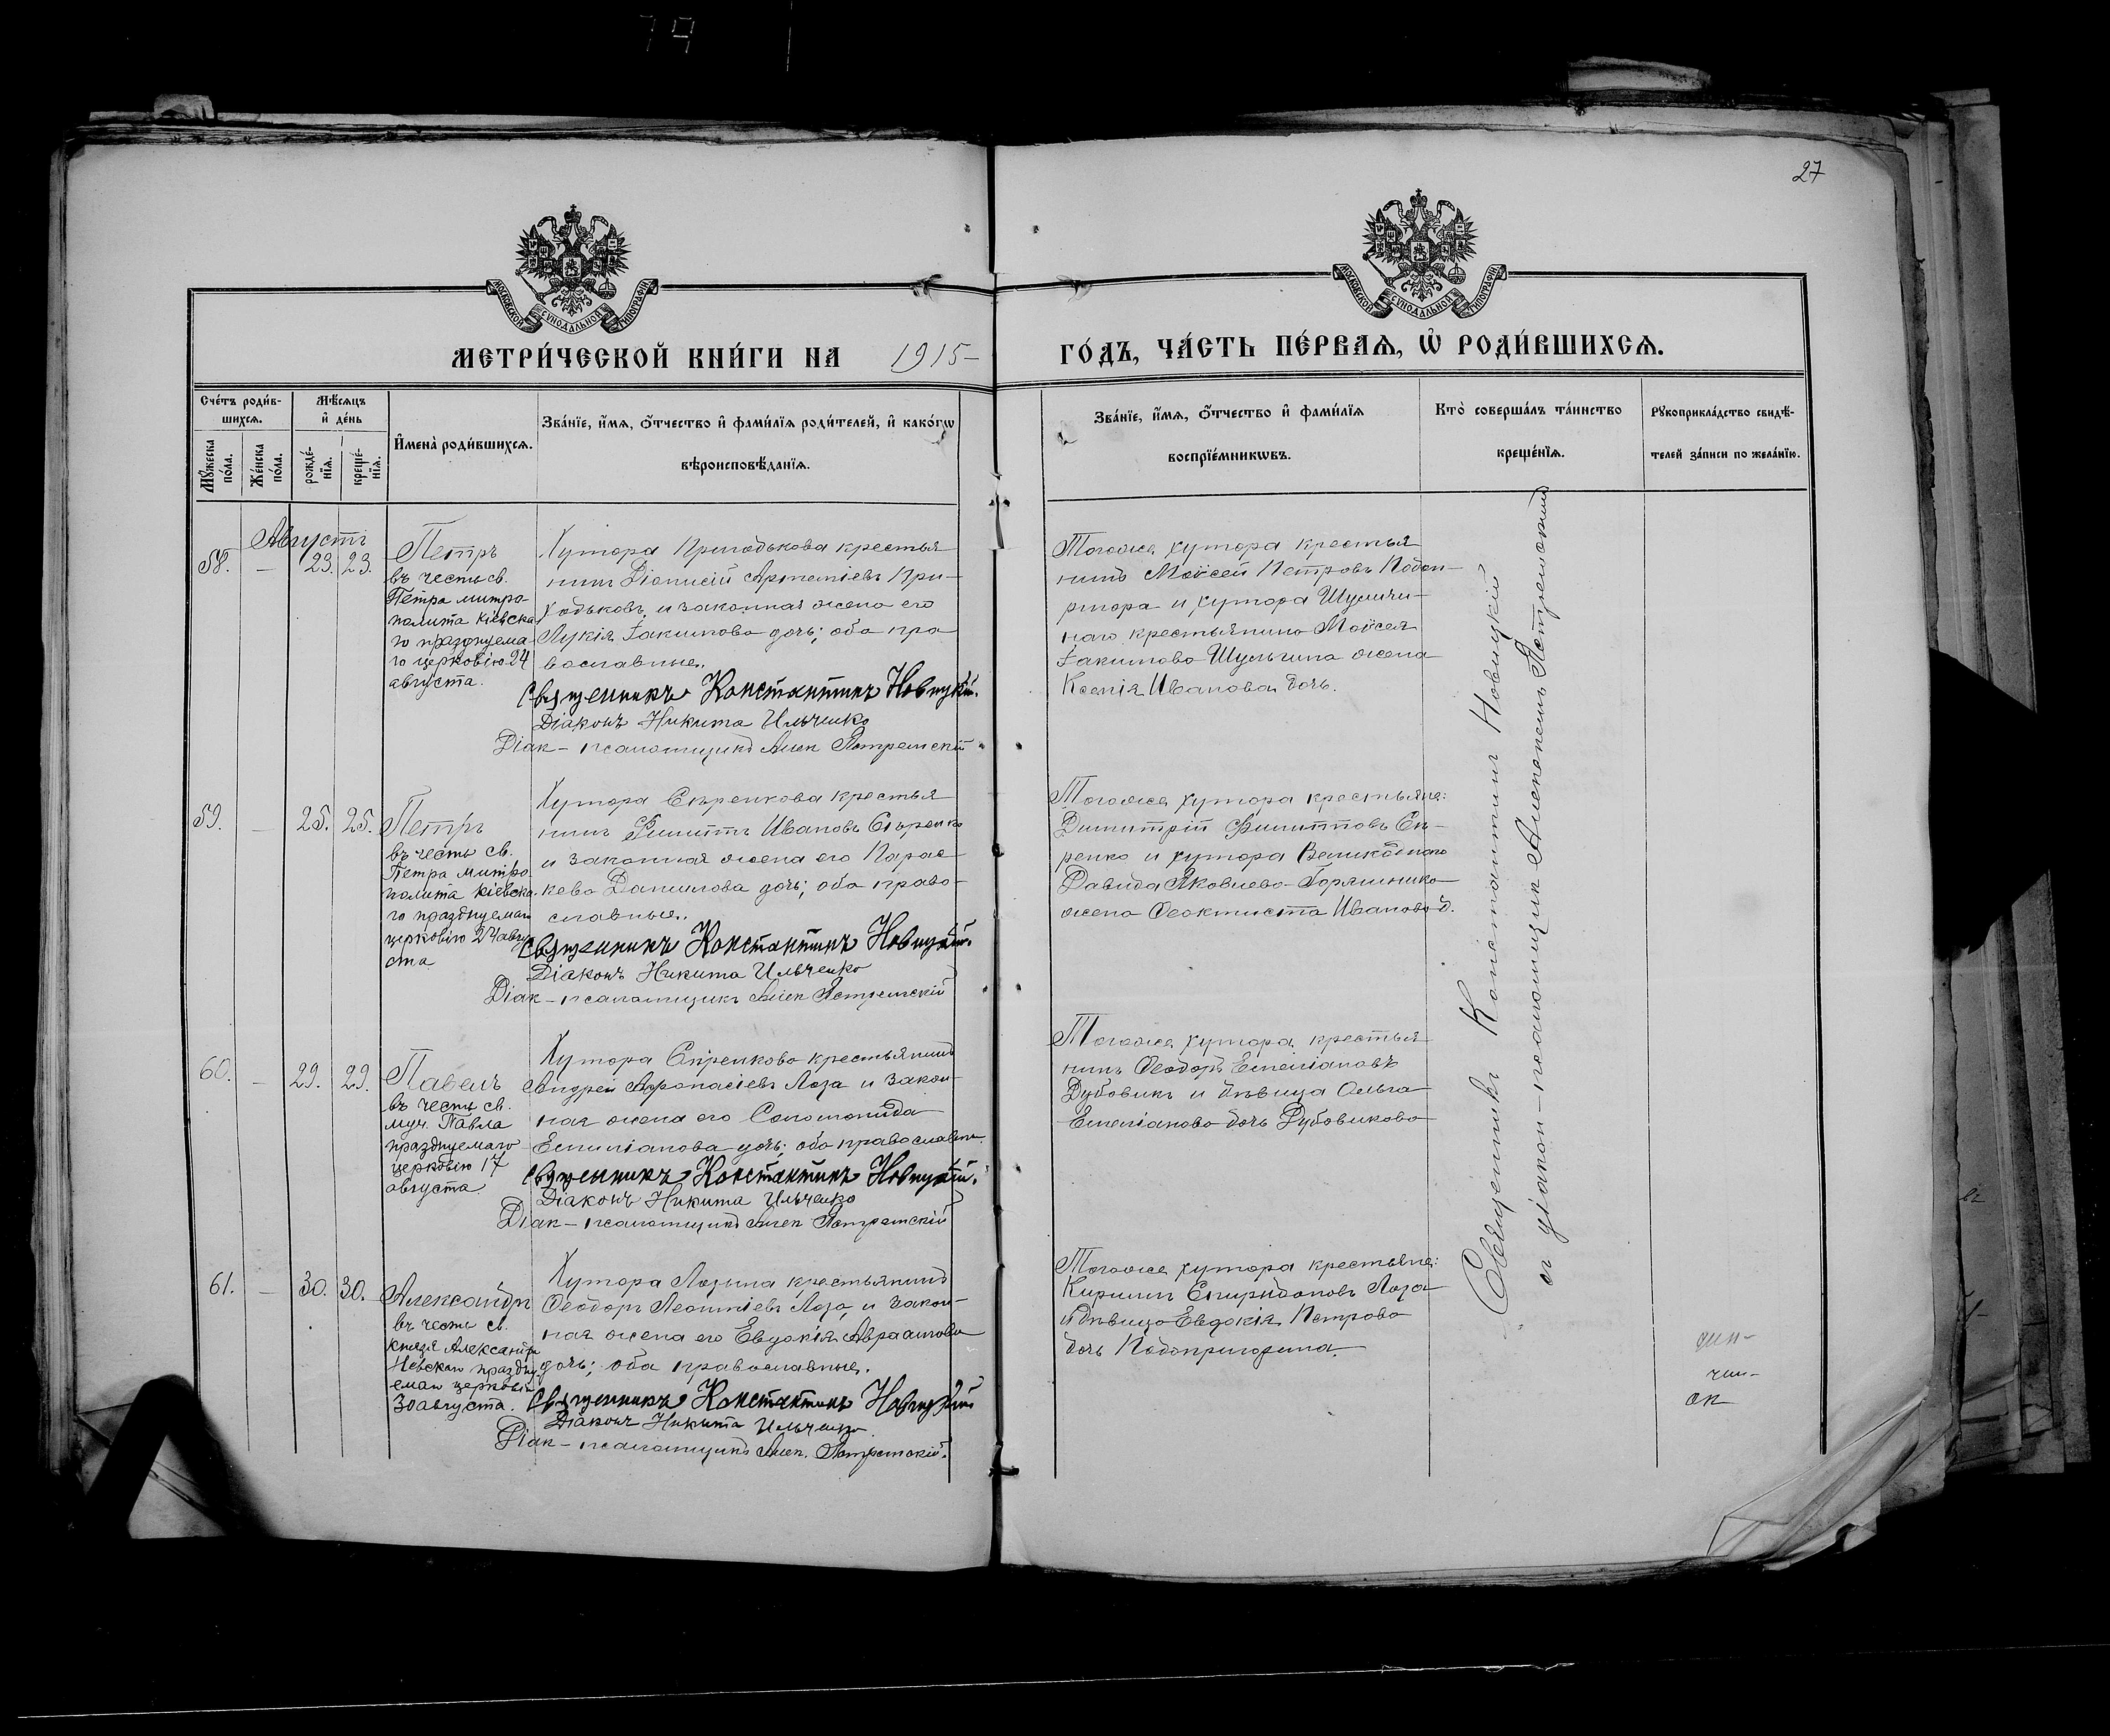 27
МОСКОВСКОЙ СѴНОДАЛЬНОЙ ТИПОГРАФІИ
МОСКОВСКОЙ СѴНОДАЛЬНОЙ ТИПОГРАФІИ
МЕТРИ́ЧЕСКОЙ КНИ́ГИ НА 1915 ГО́ДЪ, ЧА́СТЬ ПЕ́РВАѦ, Ѡ РОДИ́ВШИХСѦ.
Сче́тъ роди́в-
шихсѧ.
Мꙋ́жеска по́ла.
Же́нска по́ла.
Мѣ́сѧцъ
и де́нь
рожде́-
нїѧ.
креще́-
нїѧ.
Имена̀ роди́вшихсѧ.
Зва́нїе, и́мѧ, ѻ́тчество и фами́лїѧ роди́телей, и како́гѡ
вѣроисповѣ́данїѧ.
Зва́нїе, и́мѧ, ѻ́тчество и фами́лїѧ
воспрїе́мникѡвъ.
Кто̀ соверша́лъ та́инство
креще́нїѧ.
Рꙋкоприкла́дство свидѣ́-
телей за́писи по жела́нїю.
Августъ
58. — 23. 23.
Петръ
въ честь св.
Петра митро-
полита Кіевска
го празднуема-
го церковію 24
августа.
Хутора Приходькова крестья
нинъ Діонисій Артеміевъ При-
ходьковъ и законная жена его
Лукія Іакимова дочь; оба пра
вославные.
Священникъ Константинъ Новицкій.
Діаконъ Никита Ильченко
Діак-псаломщикъ Алек Ястремскій
Тогоже хутора крестья
нинъ Моѵсей Петровъ Подоп-
ригора и хутора Шульги-
наго крестьянина Моѵсея
Іакимова Шульгина жена
Ксенія Иванова дочь.
59. — 25. 25.
Петръ
въ честь св.
Петра митро
полита Кіевска
го празднуемаго
церковію 24 авгу
ста
Хутора Сѣренкова крестья
нинъ Филиппъ Ивановъ Сѣренко
и законная жена его Парас-
кева Данилова дочь; оба право-
славные.
Священникъ Константинъ Новицкій.
Діаконъ Никита Ильченко
Діак-псаломщикъ Алек Ястремскій
Тогоже хутора крестьяне:
Димитрій Филипповъ Сѣ-
ренко и хутора
Давида Яковлева
жена Феоктиста Иванова д.
60. — 29. 29.
Павелъ
въ честь св.
муч. Павла
празднуемаго
церковію 17
августа.
Хутора Сѣренкова крестьянинъ
Андрей Афанасіевъ Лоза и закон-
ная жена его Соломонида
Емиліанова дочь; оба православн.
Священникъ Константинъ Новицкій.
Діаконъ Никита Ильченко
Діак-псаломщикъ Алек Ястремскій
Тогоже хутора крестья
нинъ Феодоръ Емеліановъ
Дубовикъ и дѣвица Ольга
Емеліанова дочь Дубовикова
61. — 30. 30.
Александръ
въ честь св.
Князя Александра
Невскаго праздну
емаго церковію
30 августа.
Хутора Лозина крестьянинъ
Феодоръ Леонтіевъ Лоза и закон-
ная жена его Евдокія Авраамова
дочь; оба православные.
Священникъ Константинъ Новицкій
Діаконъ Никита Ильченко
Діак-псаломщикъ Алек. Ястремскій.
Тогоже хутора крестьяне:
Кириллъ Спиридоновъ Лоза
и дѣвица Евдокія Петрова
дочь Подопригорина.
Священникъ Константинъ Новицкій
съ діакон-псаломщик Алексѣемъ Ястремскимъ